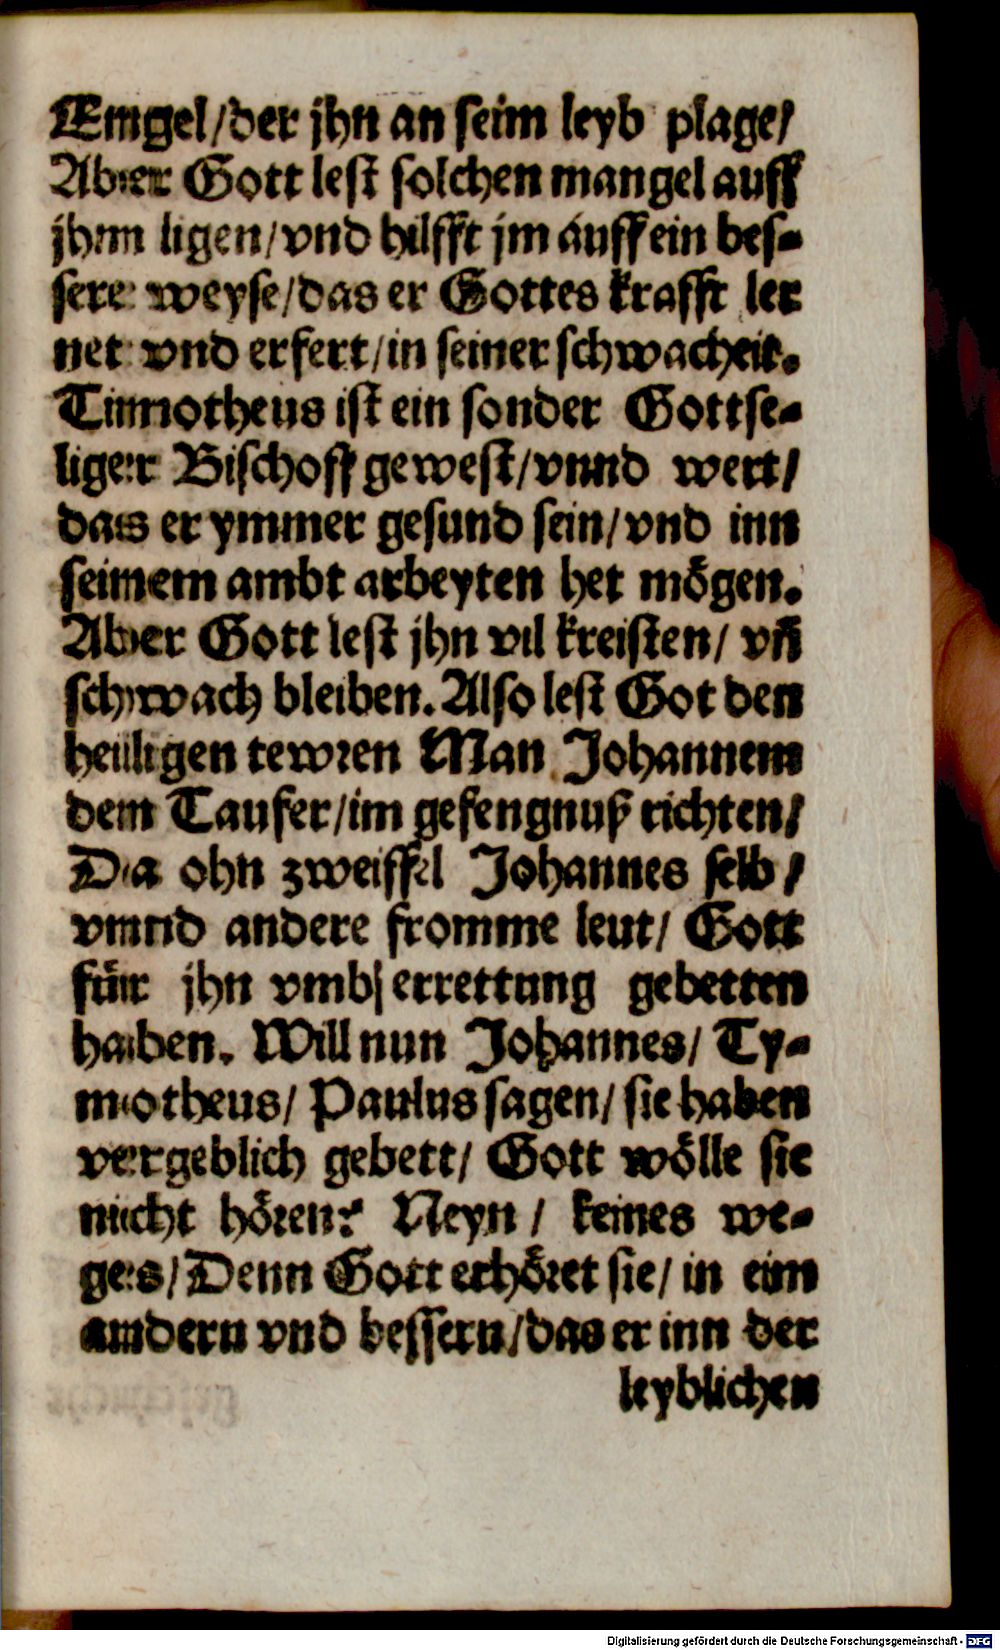 Engel/der jhn an seim leyb plage/
Aber Gott lest solchen mangel auff
jhm ligen/vnd hilfft jm auff ein bes-
sere weyse/das er Gottes krafft ler
net vnd erfert/in seiner schwacheit.
Timotheus ist ein sonder Gottse-
liger Bischoff gewest/vnnd wert/
das er ymmer gesund sein/vnd inn
seinem ambt arbeyten het mögen.
Aber Gott lest jhn vil kreisten/ vñ
schwach bleiben. Also lest Got den
heiligen tewren Man Johannem
dem Taufer/im gefengnuß richten/
Da ohn zweiffel Johannes selb/
vnnd andere fromme leut/ Gott
für jhn vmb errettung gebetten
haben. Will nun Johannes/ Ty-
motheus/ Paulus sagen/ sie haben
vergeblich gebett/ Gott wölle sie
nicht hören? Neyn/ keines we-
ges/Denn Gott erhöret sie/ in eim
andern vnd bessern/das er inn der
leyblichen
Digitalisierung gefördert durch die Deutsche Forschungsgemeinschaft - DFG